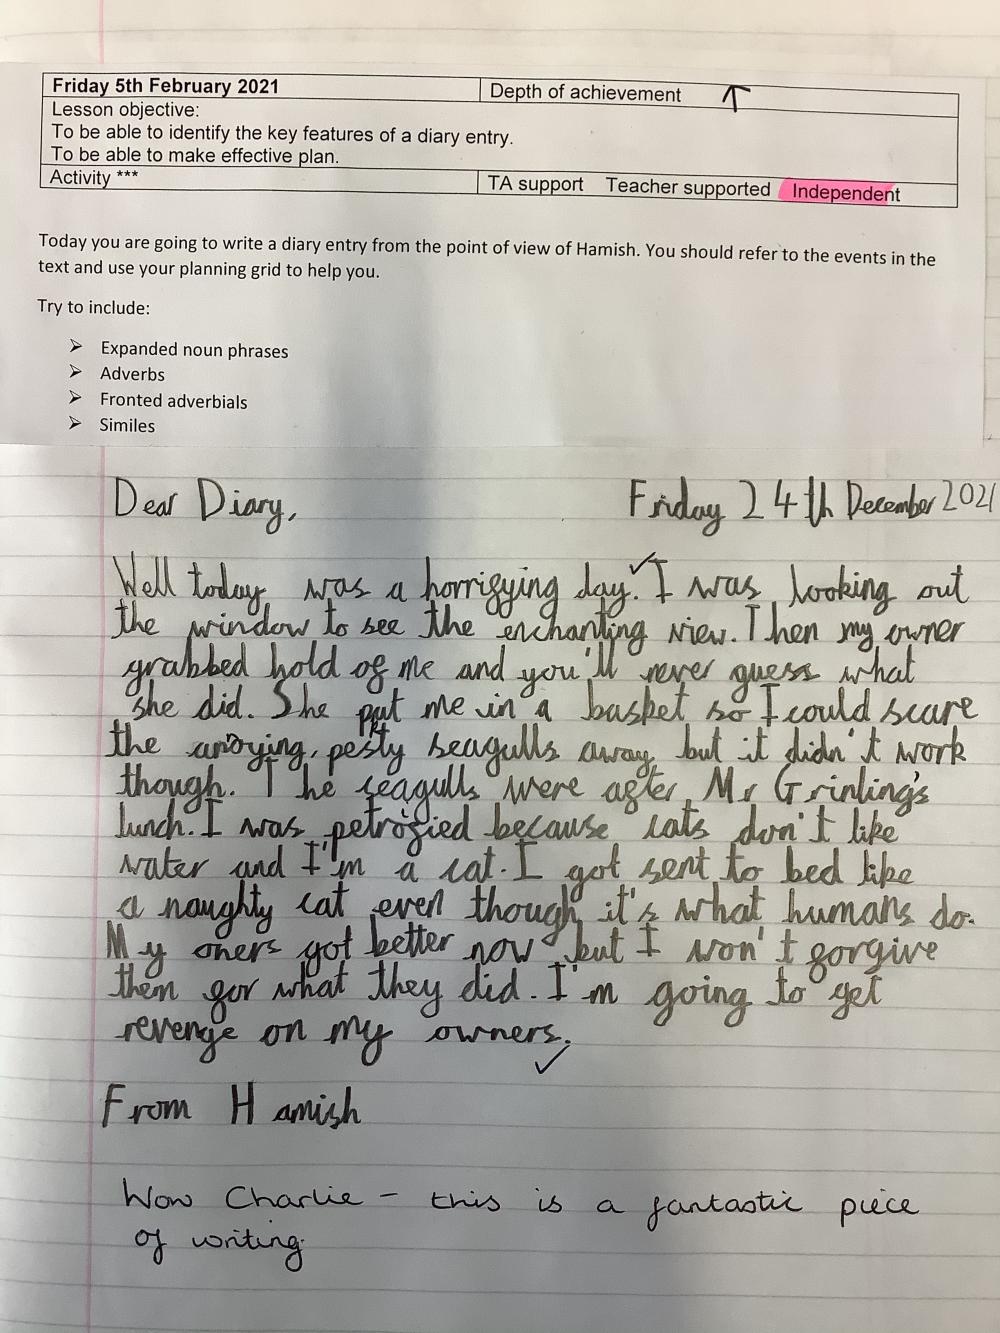 Friday 5th February 2021 Depth of achievement ↑
Lesson objective:
To be able to identify the key features of a diary entry.
To be able to make effective plan.
Activity *** TA support Teacher supported Independent
Today you are going to write a diary entry from the point of view of Hamish. You should refer to the events in the
text and use your planning grid to help you.
Try to include:
➢ Expanded noun phrases
➢ Adverbs
➢ Fronted adverbials
➢ Similes
Dear Diary, Friday 24th December 2021
Well today was a horrifying day. I was looking out
the window to see the enchanting view. Then my owner
grabbed hold of me and you'll never guess what
she did. She put me in a basket so I could scare
the annoying, pesty seagulls away, but it didn't work
though. The seagulls were after Mr Grinling's
lunch. I was petrofied because cats don't like
water and I'm a cat. I got sent to bed like
a naughty cat even though it's what humans do.
My oners got better now but I won't forgive
them for what they did. I'm going to get
revenge on my owners.
From Hamish
Wow Charlie - this is a fantastic piece
of writing.